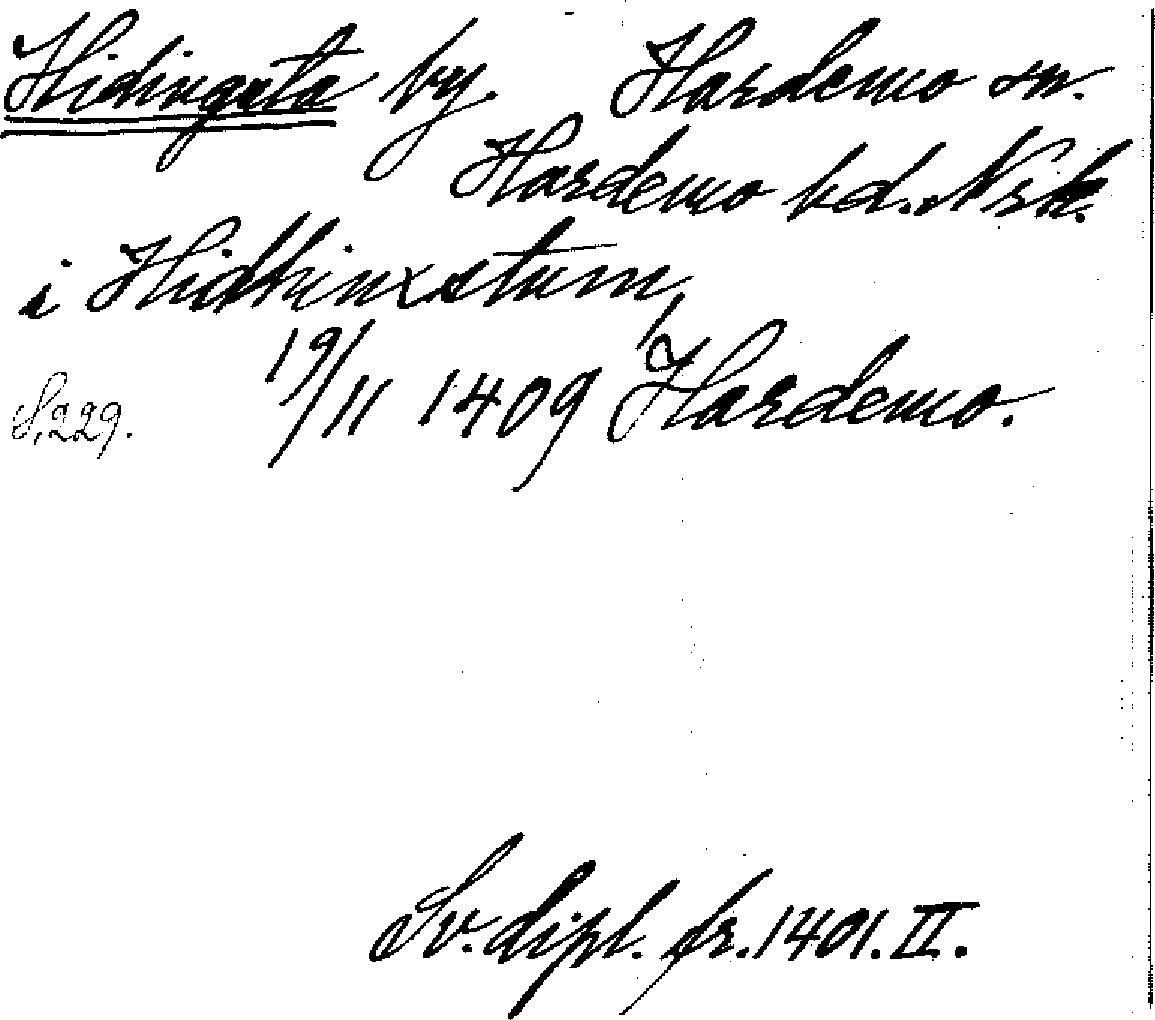 Hidingsta by. Hardemo sn.
Hardemo hd. Nrk.
i Hidhinxstum,
19/11 1409 Hardemo.
S. 229.
Sv. dipl. fr. 1401. II.